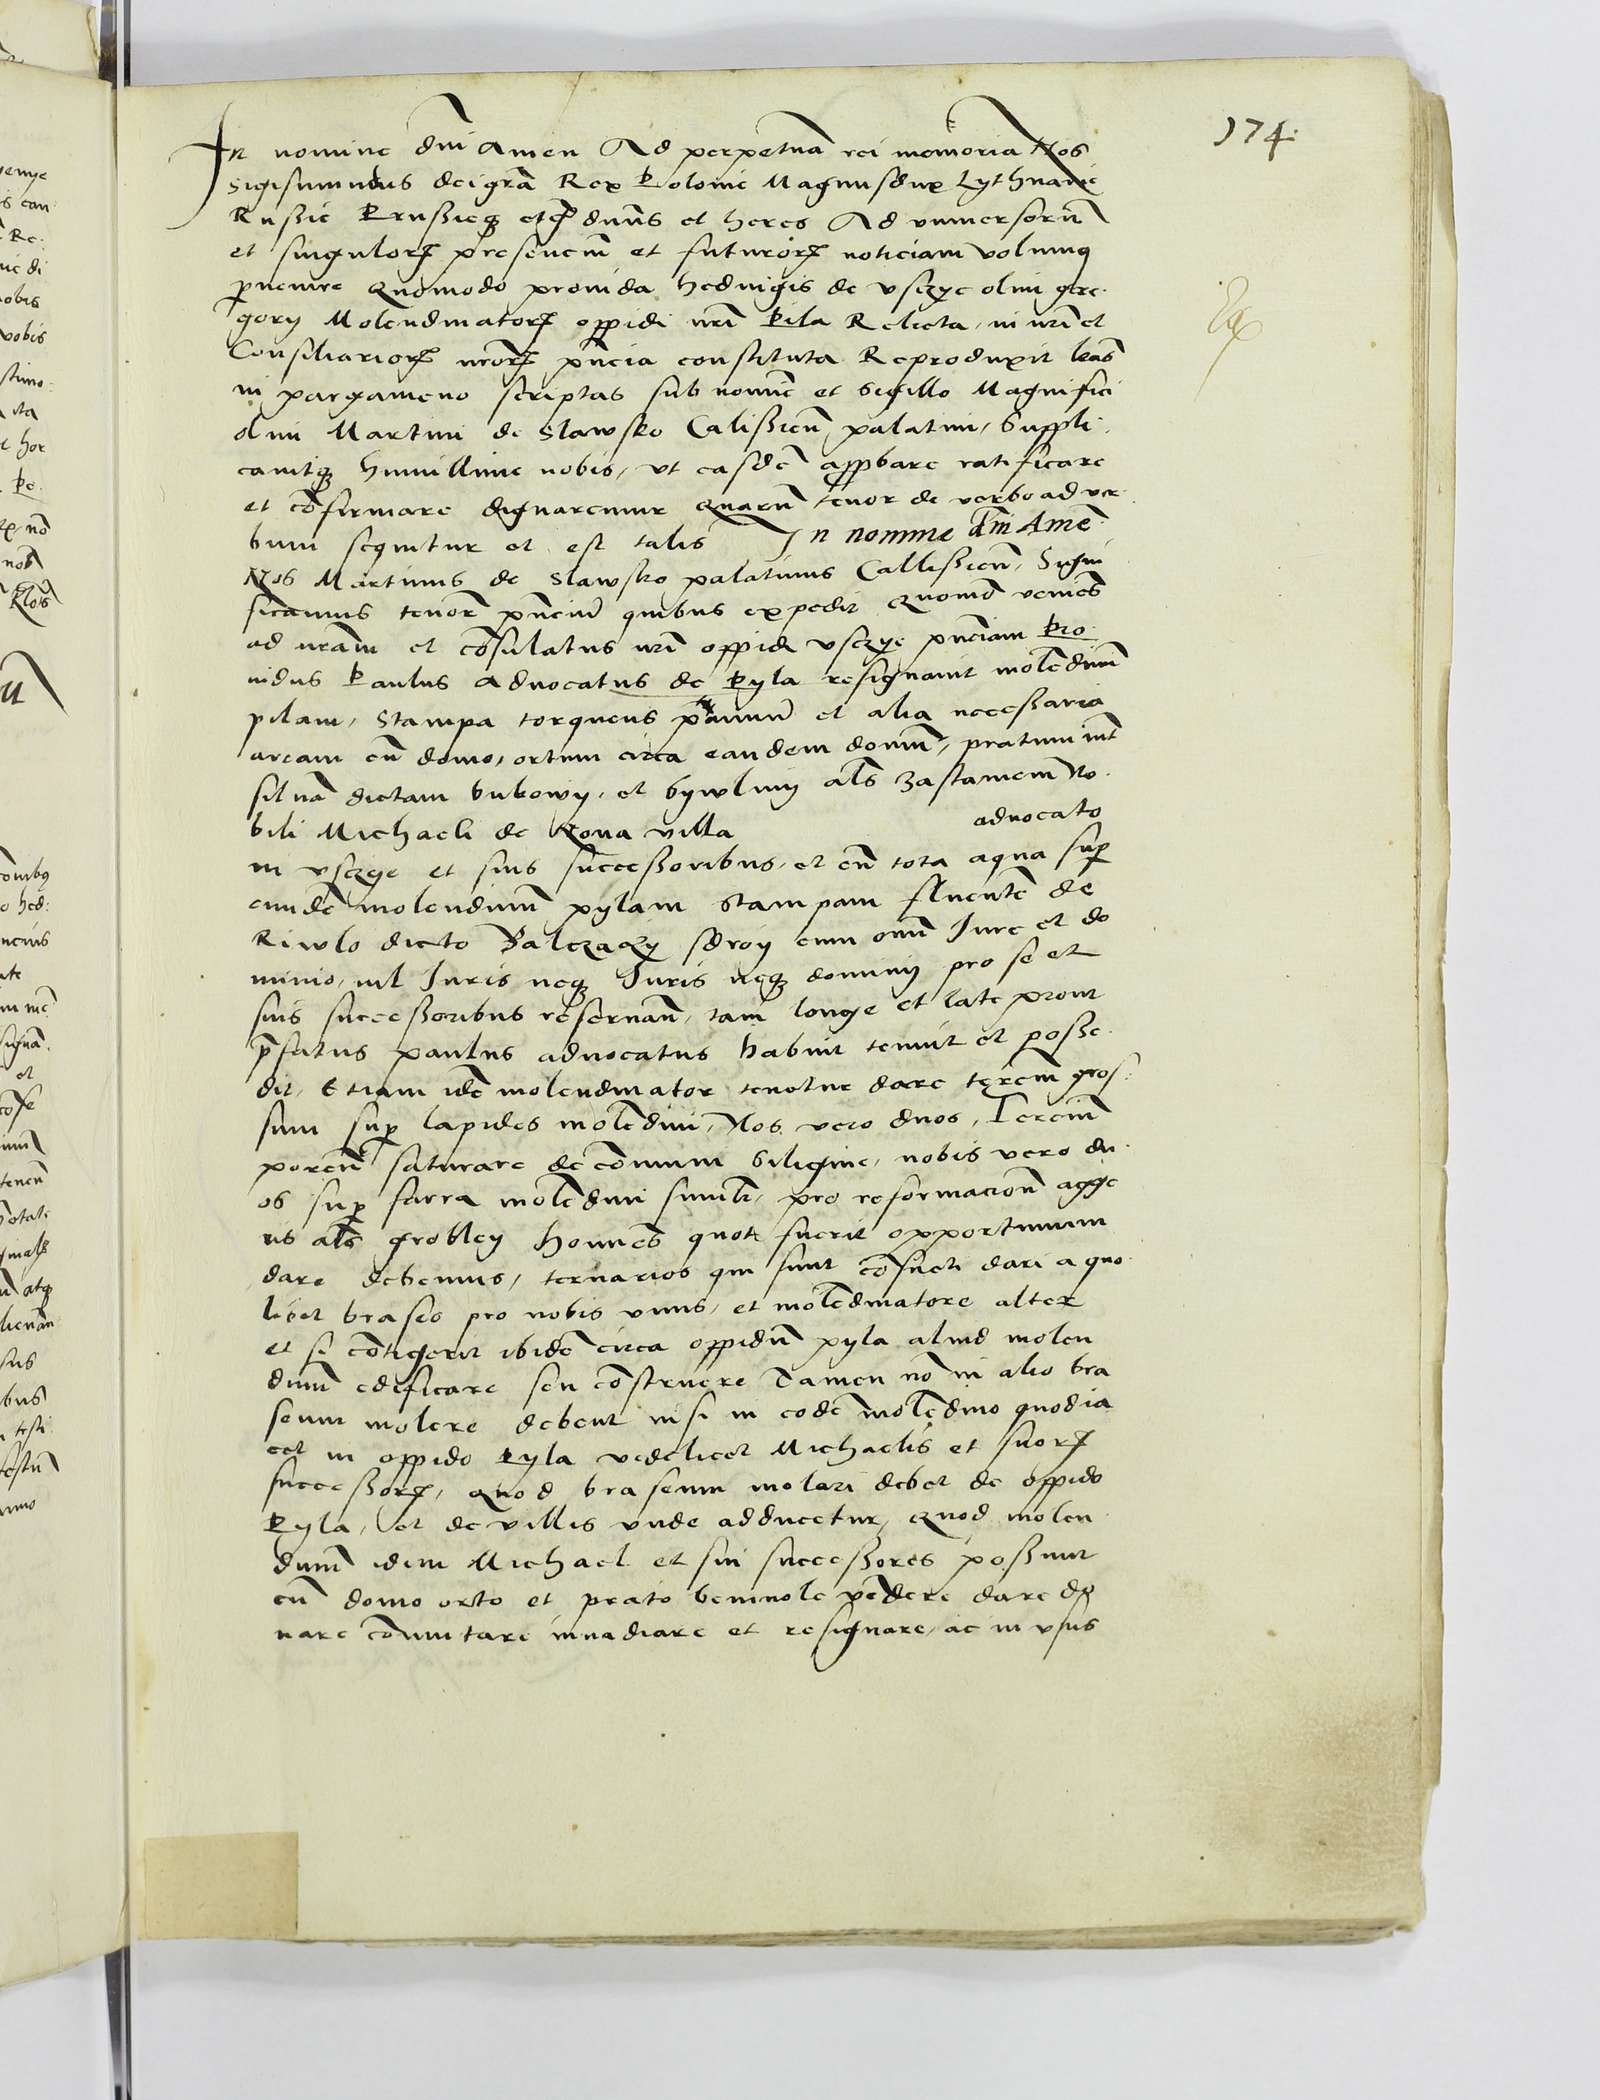 174
In nomine dni Amen Ad perpetuã rei memoria Nos
Sigismundus dei grã Rex Polonie Magnus dux Lythuanie
Russie Prussieqz etc dnus et heres Ad universorũ
et singulorꝝ presenciũ et futurorꝝ noticiam volumus
pvenire Quomodo provida hedvigis de Usczye olim gre
gory Molendinatorꝝ oppidi nrĩ Pila Relicta, in nrĩ et
Consiliariorꝝ nrorꝝ pñcia constituta Reproduxit lras
in pargameno scriptas sub nomine et sigillo Magnifici
olim Martini de Slawsko Calissieñ palatini, Suppli
cavitqz humillime nobis, ut easdẽ approbare ratificare
et cõfirmare dignaremur Quarũ tenor de verbo ad ver
bum sequitur et est talis In nomine dni Amẽ
Nos Martinus de Slawsko palatinus Callissieñ, Signi
ficamus tenore pñciũ quibus expedit Quomõ veniẽs
ad nram et cõsulatus nrĩ oppidi Usczye pñciam Pro
vidus Paulus Advocatus de Pyla resignavit molẽdinũ
pilam, Stampa torquens pannũ et alia necessaria
aream cũ domo, ortum circa eandem domũ, pratum int
silvã dictam bukowy, et bywlny als Zastawem No
bili Michaeli de Nova villa advocato
in Usczye et suis successoribus, et cũ tota aqua sup
eundẽ molendinũ pylam stampam fluentẽ de
Riwlo dicto Balczaky sdroy cum omni Jure et do
minio, nil Juris neqz Juris neqz dominij pro se et
suis successoribus reservanñ, tam longe et late prout
pfatus paulus advocatus habuit tenuit et posse
dit, Etiam idẽ molendinator tenetur dare terciũ gros
sum sup lapides molẽdini, Nos vero duos, Terciũ
porcũ saturare de cõmuni siligine, nobis vero du
os sup farra molẽdini simili, pro reformacione agge
ris als grobley homines quot fuerit opportunum
dare debemus, ternarios qui sunt cõsueti dari a quo
libet braseo pro nobis unus, et molẽdinatore alter
et si cõtigerit ibidẽ circa oppidũ pyla aliud molen
dinũ edificare seu cõstruere Tamen nõ in alio bra
seum molere debent nisi in eodẽ molẽdino quod ia
cet in oppido Pyla videlicet Michaelis et suorꝝ
successorꝝ, Quod braseum molari debet de oppido
Pyla, et de villis unde adducetur, Quod molen
dinũ idem Michael et sui successores possunt
cũ domo orto et prato benivole vẽdere dare do
nare cõmutare invadiare et resignare, ac in usus